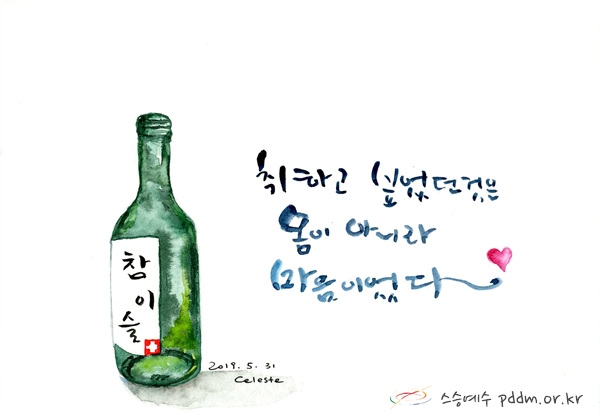 취하고 싶었던것은
몸이 아니라
마음이었다
참
이
슬
2019. 5. 31
Celeste
스승예수 pddm.or.kr